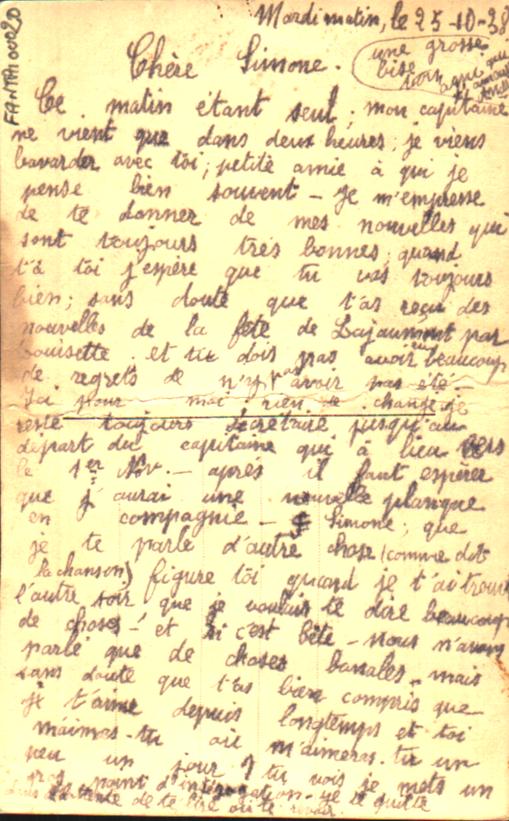 FANTAI 00020
Mardi matin, le 25-10-38
une grosse
bise
ton ami qui
Chère Simone.
Ce matin étant seul; mon capitaine
ne vient que dans deux heures; je viens
bavarder avec toi; petite amie à qui je
pense bien souvent - Je m'empresse
de te donner de mes nouvelles qui
sont toujours très bonnes; quand
t'à toi j'espère que tu vas toujours
bien; sans doute que t'as reçu des
nouvelles de la fête de par
Louisette et tu dois pas avoir eu beaucoup
de regrets de n'y pas avoir pas été -
Ici pour moi rien de changé je
reste toujours secrétaire jusqu'au
départ du capitaine qui à lieu vers
le 1er Nov. - après il faut espérer
que j'aurai une nouvelle planque
en compagnie - Simone; que
je te parle d'autre chose (comme dit
la chanson) figure toi quand je t'ai trouvé
l'autre soir que je voulais te dire beaucoup
de choses - et si c'est bête - nous n'avons
parlé que de choses banales - mais
sans doute que t'as bien compris que
je t'aime depuis longtemps et toi
m'aimes-tu où m'aimeras-tu un
peu un jour ? tu vois je mets un
gros point d'intérogation - je te quitte
dans l'attente de te lire où te revoir.